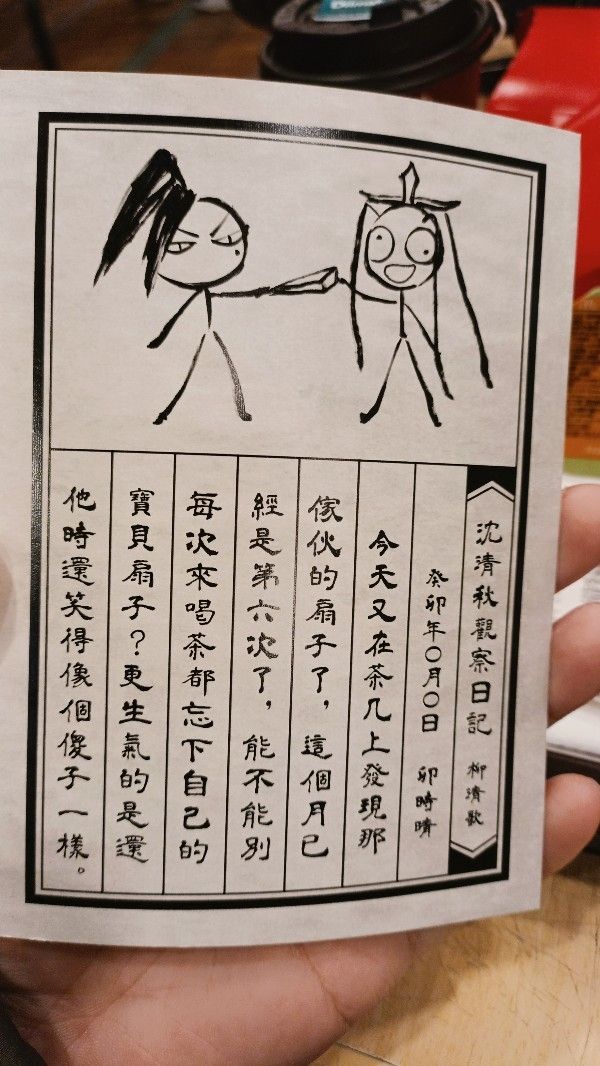 沈清秋觀察日記 柳清歌
癸卯年〇月〇日 卯時晴
今天又在茶几上發現那
傢伙的扇子了，這個月已
經是第六次了，能不能別
每次來喝茶都忘下自己的
寶貝扇子？更生氣的是還
他時還笑得像個傻子一樣。